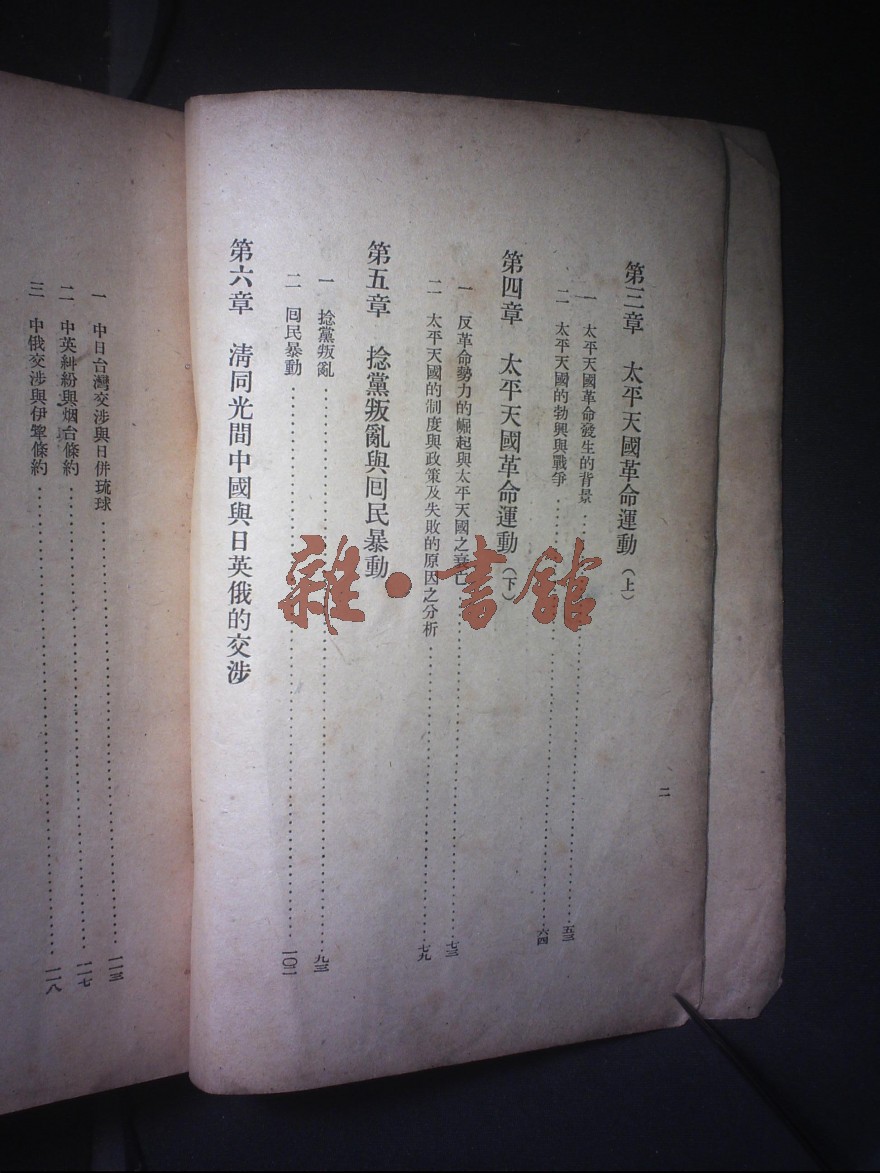 二
第三章　太平天國革命運動（上）
一　太平天國革命發生的背景……五三
二　太平天國的勃興與戰爭……六四
第四章　太平天國革命運動（下）
一　反革命勢力的崛起與太平天國之衰亡……七三
二　太平天國的制度與政策及失敗的原因之分析……七九
第五章　捻黨叛亂與囘民暴動
一　捻黨叛亂……九三
二　囘民暴動……一〇二
第六章　淸同光間中國與日英俄的交涉
一　中日台灣交涉與日併琉球……一一三
二　中英糾紛與烟台條約……一一七
三　中俄交涉與伊犂條約……一一八
雜·書館